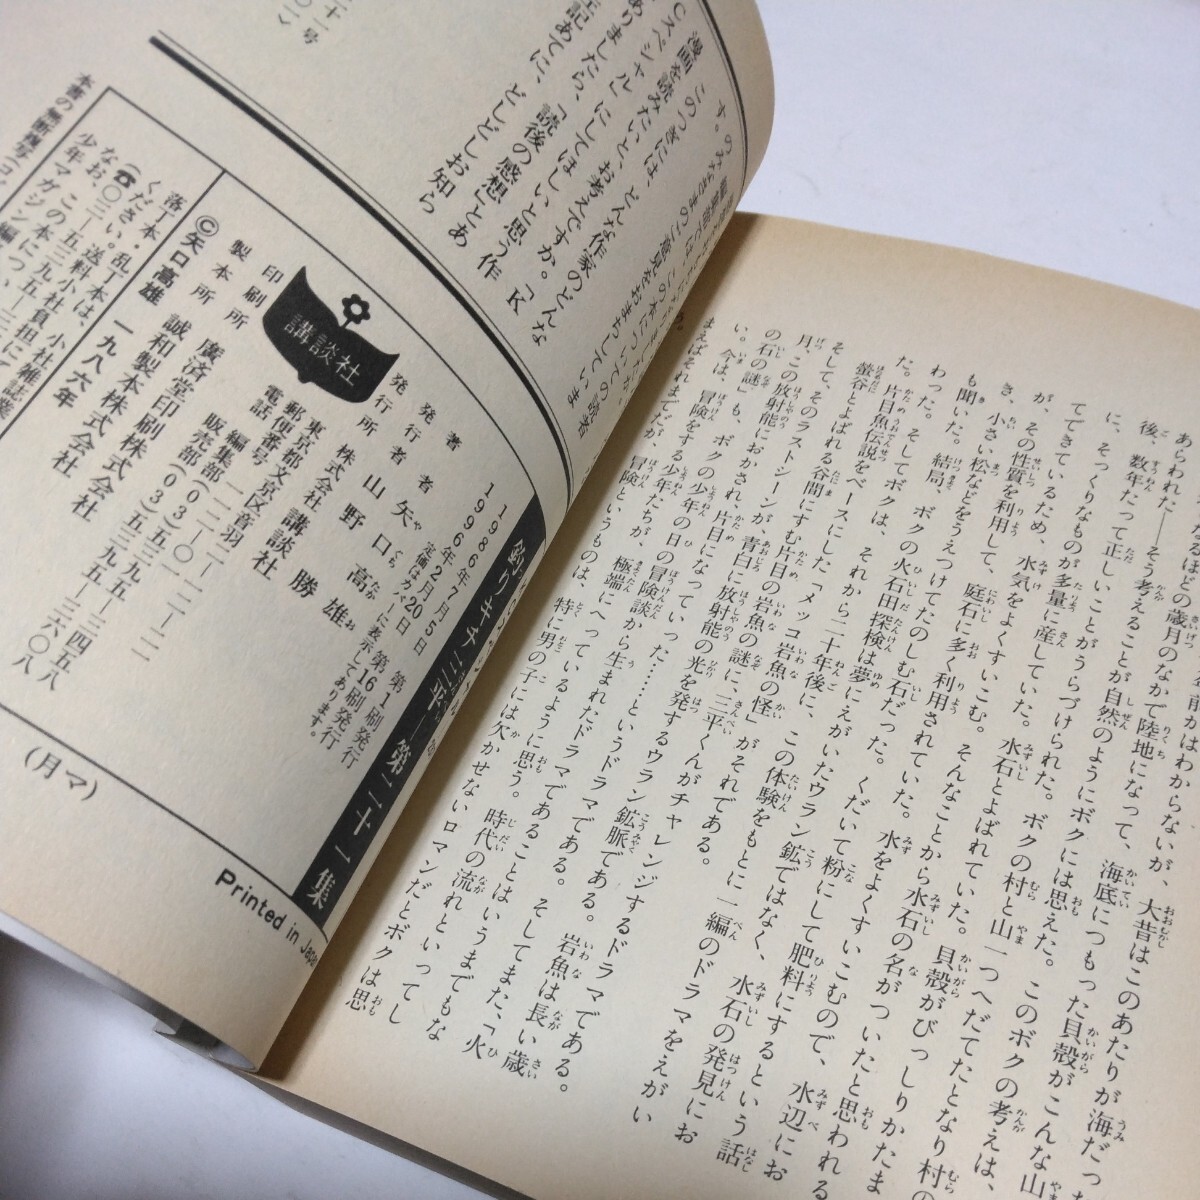 あらわれた――そう考えることが自然のようにボクには思えた。このボクの考えは、
後、数年たって正しいことがうらづけられた。ボクの村と山一つへだてたとなり村の
に、そっくりなものが多量に産していた。水石とよばれていた。貝殻がびっしりかたま
てできているため、水気をよくすいこむ。そんなことから水石の名がついたと思われる
が、その性質を利用して、庭石に多く利用されていた。水をよくすいこむので、水辺にお
き、小さい松などをうえつけてたのしむ石だった。くだいて粉にして肥料にするという話
も聞いた。結局、ボクの火石田探検は夢にえがいたウラン鉱ではなく、水石の発見にお
わった。そしてボクは、それから二十年後に、この体験をもとに一編のドラマをえがい
た。片目魚伝説をベースにした「メッコ岩魚の怪」がそれである。
螢谷とよばれる谷間にすむ片目の岩魚の謎に、三平くんがチャレンジするドラマである。
そして、そのラストシーンが、青白に放射能の光を発するウラン鉱脈である。岩魚は長い歳
月、この放射能におかされ、片目になっていった……というドラマである。そしてまた、「火
の石の謎」も、ボクの少年の日の冒険談から生まれたドラマであることはいうまでもな
い。今は、冒険をする少年たちが、極端にへっているように思う。時代の流れといってし
まえばそれまでだが、冒険というものは、特に男の子には欠かせないロマンだとボクは思
う。
す。
漫画 このつぎには、どんな作家のどんな
Cスペシャル」にしてほしいと思う作
ありましたら、「読後の感想」とあ
どしどしお知ら
二十一号
第二十一集
1986年7月5日 第1刷発行
1996年2月20日 第16刷発行
定価はカバーに表示してあります。
著者 矢口高雄
発行者 山野 勝
発行所 株式会社 講談社
東京都文京区音羽二―一二―二一
郵便番号 一一二―〇一
電話 編集部(〇三)五三九五―三四五八
販売部(〇三)五三九五―三六〇八
印刷所 廣済堂印刷株式会社
製本所 誠和製本株式会社
講談社
©矢口高雄 一九八六年
落丁本・乱丁本は、小社雑誌業
ください。送料小社負担にて
なお、この本につい
少年マガジン編
本書の無断複写(コピ
(月マ)
Printed in Japa